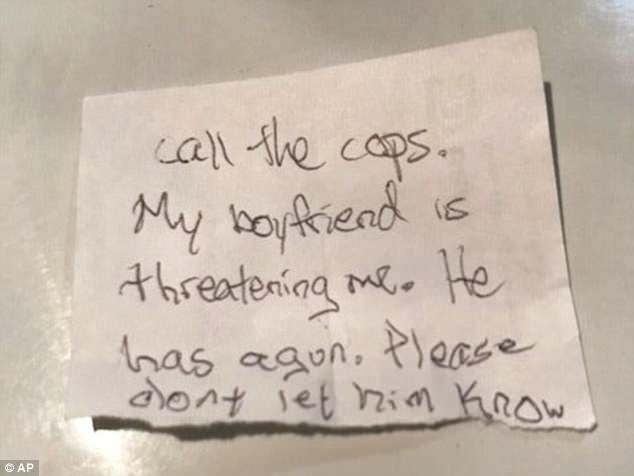 call the cops.
My boyfriend is
threatening me. He
has a gun. Please
dont let him know
© AP